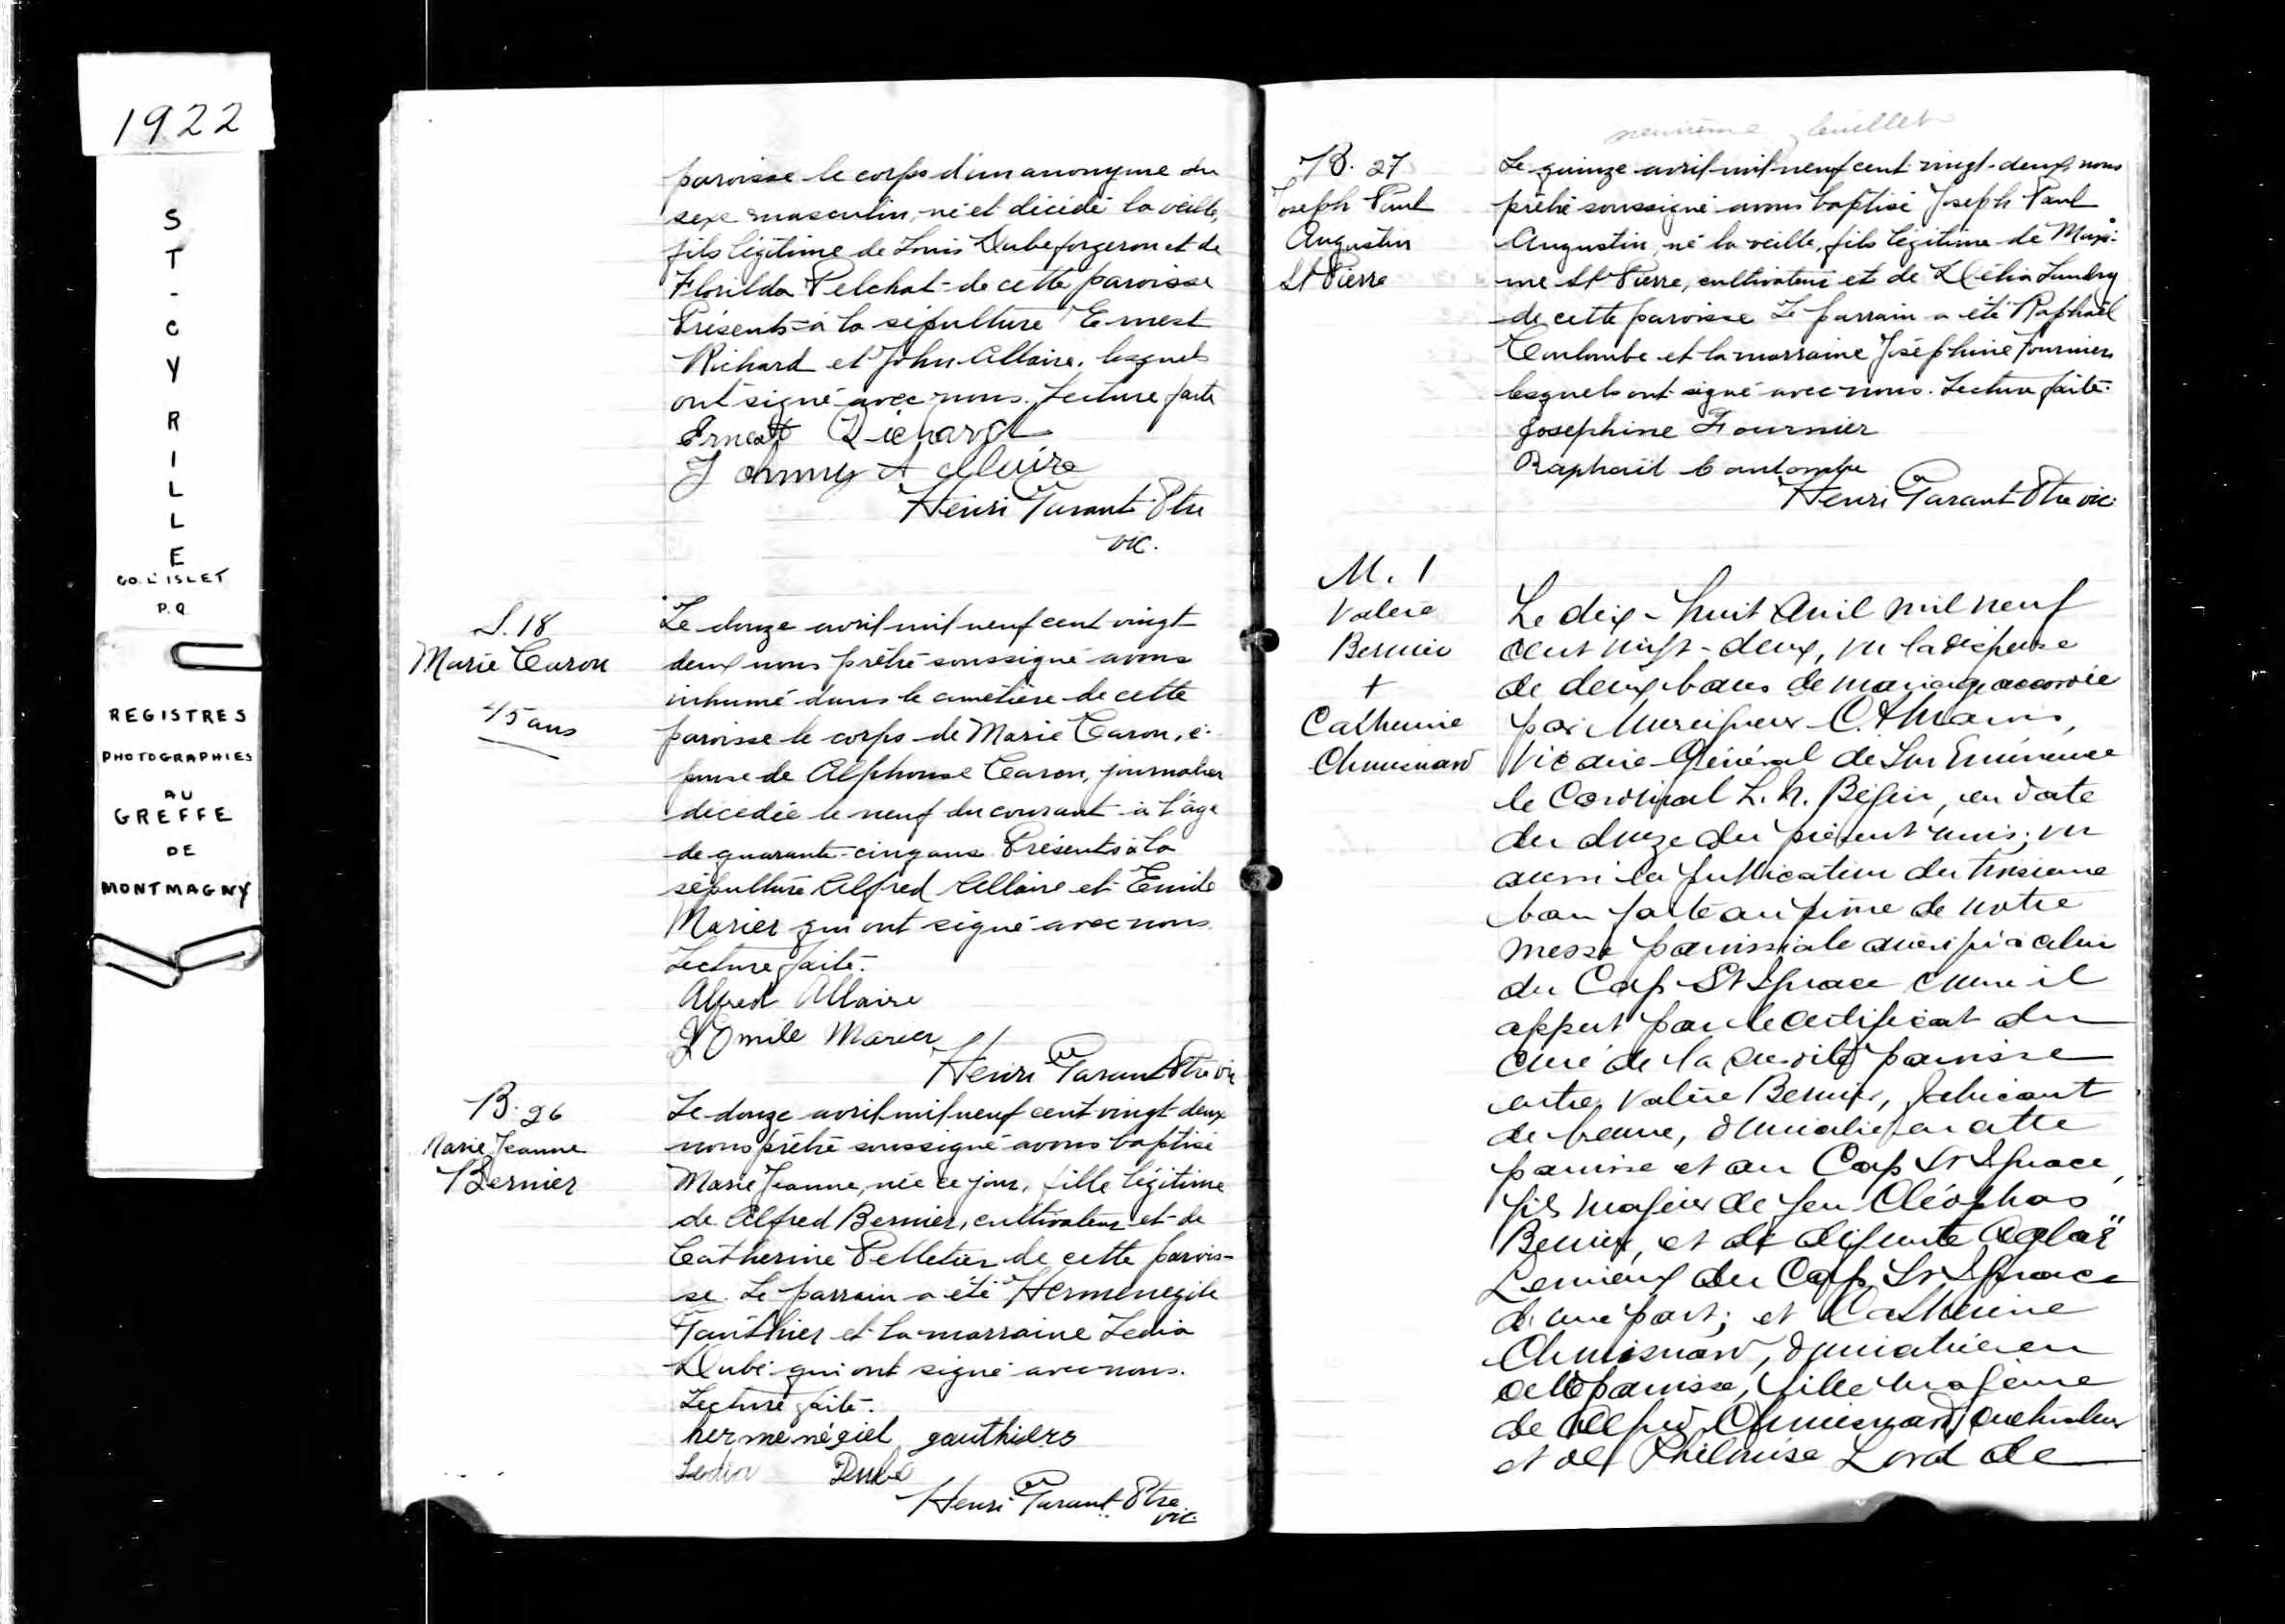 1922
ST-CYRILLE
CO. L'ISLET
P.Q.
REGISTRES
PHOTOGRAPHIES
AU
GREFFE
DE
MONTMAGNY
paroisse le corps d'un anonyme du
sexe masculin, né et décédé la veille,
fils légitime de Louis Dube forgeron et de
Florilda Pelchat de cette paroisse
Présents à la sépulture Ernest
Richard et John Allaire, lesquels
ont signé avec nous. Lecture faite
Ernest Richard
Johnny A Allaire
Henri Parant Ptre
vic.
S. 18
Marie Caron
45 ans
Le douze avril mil neuf cent vingt
deux nous prêtre soussigné avons
inhumé dans le cimetière de cette
paroisse le corps de Marie Caron, é-
pouse de Alphonse Caron, journalier
décédée le neuf du courant à l'âge
de quarante-cinq ans. Présents à la
sépulture Alfred Allaire et Emile
Marier qui ont signé avec nous.
Lecture faite.
Alfred Allaire
J Emile Marier
Henri Parant Ptre vic
B. 26
Marie Jeanne
Bernier
Le douze avril mil neuf cent vingt-deux
nous prêtre soussigné avons baptisé
Marie Jeanne, née ce jour, fille légitime
de Alfred Bernier, cultivateur et de
Catherine Pelletier de cette parois-
se. Le parrain a été Hermenegile
Gauthier et la marraine Ledia
Dubé qui ont signé avec nous.
Lecture faite.
herménégiel gauthiers
Ledia Dubé
Henri Parant Ptre
vic.
neuvième feuillet
B. 27
Joseph Paul
Augustin
St Pierre
Le quinze avril mil neuf cent vingt-deux, nous
prêtre soussigné avons baptisé Joseph Paul
Augustin, né la veille, fils légitime de Maxi-
me St Pierre, cultivateur et de Délia Landry
de cette paroisse Le parrain a été Raphaël
Coulombe et la marraine Joséphine Fournier
lesquels ont signé avec nous. Lecture faite.
Josephine Fournier
Raphaël Coulombe
Henri Parant Ptre vic
M. 1
Valère
Bernier
+
Catherine
Chouinard
Le dix-huit Avril mil neuf
cent vingt-deux, vu la dispense
de deux bans de mariage accordée
par Monseigneur C. A. Marois,
Vicaire Général de Son Eminence
le Cardinal L. N. Bégin, en date
du douze du présent mois; vu
aussi la publication du troisième
ban faite au prône de notre
messe paroissiale ainsi qu'à celui
du Cap St Ignace comme il
appert par le certificat du
curé de la susdite paroisse
entre Valère Bernier, fabricant
de beurre, domicilié en cette
paroisse et au Cap St Ignace,
fils majeur de feu Cléophas
Bernier, et de défunte Aglaë
Lemieux du Cap St Ignace
d'une part; et Catherine
Chouinard, domiciliée en
cette paroisse, fille majeure
de Alfred Chouinard cultivateur
et de Philomise Lord de